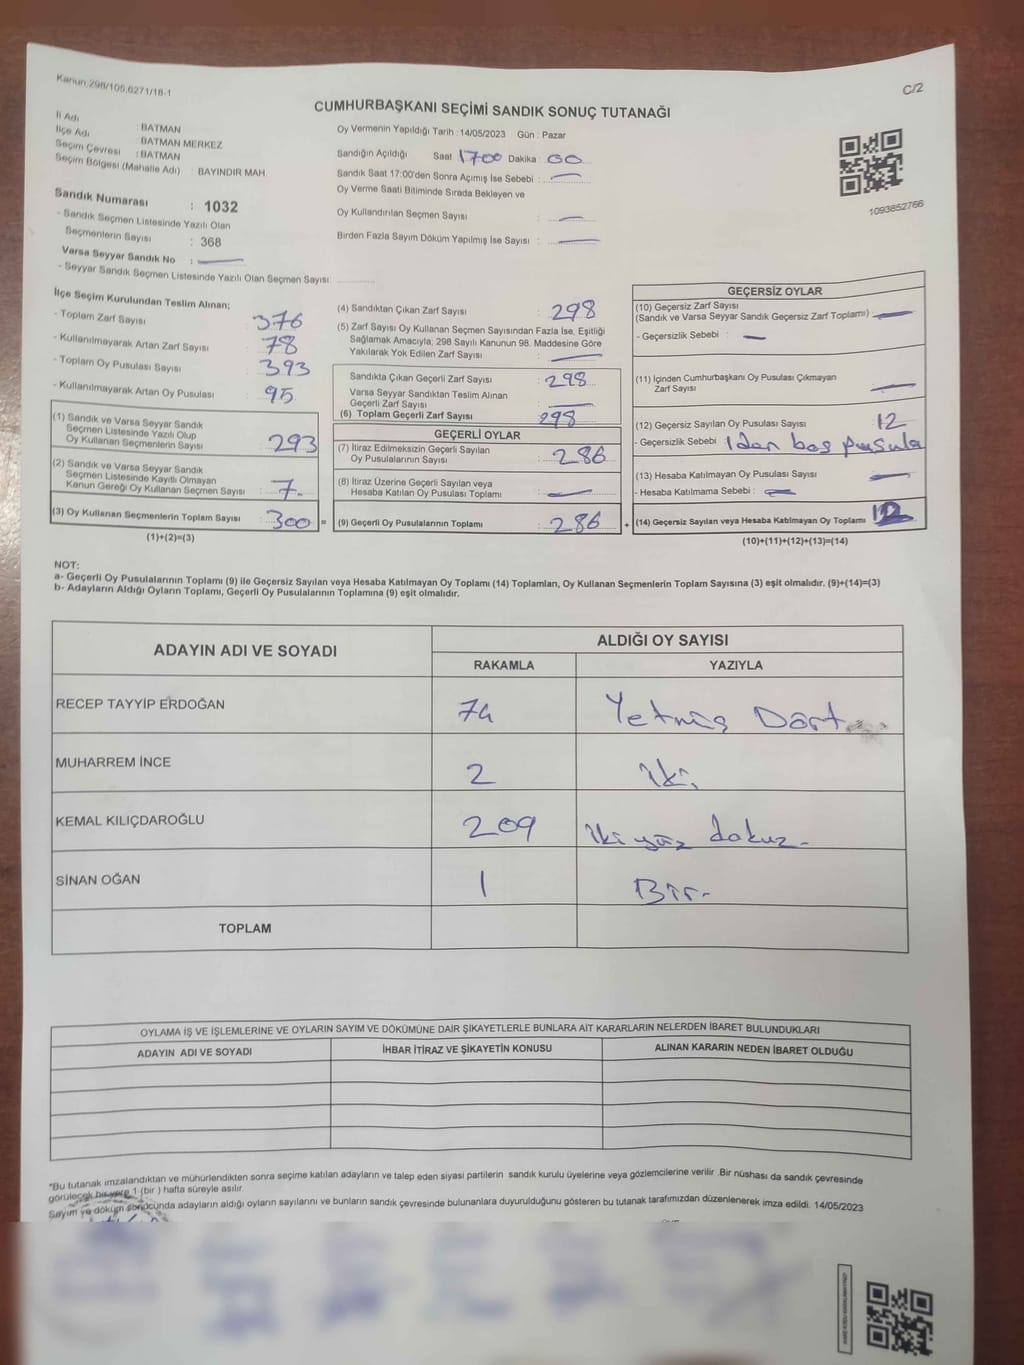 Kanun:298/105,6271/18-1
C/2
CUMHURBAŞKANI SEÇİMİ SANDIK SONUÇ TUTANAĞI
İl Adı : BATMAN
İlçe Adı : BATMAN MERKEZ
Seçim Çevresi : BATMAN
Seçim Bölgesi (Mahalle Adı) : BAYINDIR MAH.
Sandık Numarası : 1032
- Sandık Seçmen Listesinde Yazılı Olan
Seçmenlerin Sayısı : 368
Varsa Seyyar Sandık No :
- Seyyar Sandık Seçmen Listesinde Yazılı Olan Seçmen Sayısı:
Oy Vermenin Yapıldığı Tarih :14/05/2023 Gün : Pazar
Sandığın Açıldığı Saat 1700 Dakika : 00
Sandık Saat 17:00'den Sonra Açımış İse Sebebi :
Oy Verme Saati Bitiminde Sırada Bekleyen ve
Oy Kullandırılan Seçmen Sayısı :
Birden Fazla Sayım Döküm Yapılmış İse Sayısı :
1093852766
İlçe Seçim Kurulundan Teslim Alınan;
- Toplam Zarf Sayısı : 376
- Kullanılmayarak Artan Zarf Sayısı : 78
- Toplam Oy Pusulası Sayısı : 393
- Kullanılmayarak Artan Oy Pusulası : 95
(1) Sandık ve Varsa Seyyar Sandık
Seçmen Listesinde Yazılı Olup
Oy Kullanan Seçmenlerin Sayısı : 293
(2) Sandık ve Varsa Seyyar Sandık
Seçmen Listesinde Kayıtlı Olmayan
Kanun Gereği Oy Kullanan Seçmen Sayısı : 7
(3) Oy Kullanan Seçmenlerin Toplam Sayısı : 300 =
(1)+(2)=(3)
(4) Sandıktan Çıkan Zarf Sayısı : 298
(5) Zarf Sayısı Oy Kullanan Seçmen Sayısından Fazla İse, Eşitliği
Sağlamak Amacıyla; 298 Sayılı Kanunun 98. Maddesine Göre
Yakılarak Yok Edilen Zarf Sayısı :
Sandıkta Çıkan Geçerli Zarf Sayısı : 298
Varsa Seyyar Sandıktan Teslim Alınan
Geçerli Zarf Sayısı :
(6) Toplam Geçerli Zarf Sayısı : 298
GEÇERLİ OYLAR
(7) İtiraz Edilmeksizin Geçerli Sayılan
Oy Pusulalarının Sayısı : 286
(8) İtiraz Üzerine Geçerli Sayılan veya
Hesaba Katılan Oy Pusulası Toplamı :
(9) Geçerli Oy Pusulalarının Toplamı : 286 +
GEÇERSİZ OYLAR
(10) Geçersiz Zarf Sayısı
(Sandık ve Varsa Seyyar Sandık Geçersiz Zarf Toplamı) :
- Geçersizlik Sebebi :
(11) İçinden Cumhurbaşkanı Oy Pusulası Çıkmayan
Zarf Sayısı :
(12) Geçersiz Sayılan Oy Pusulası Sayısı : 12
- Geçersizlik Sebebi : 1den boş pusula
(13) Hesaba Katılmayan Oy Pusulası Sayısı :
- Hesaba Katılmama Sebebi :
(14) Geçersiz Sayılan veya Hesaba Katılmayan Oy Toplamı : 12
(10)+(11)+(12)+(13)=(14)
NOT:
a- Geçerli Oy Pusulalarının Toplamı (9) ile Geçersiz Sayılan veya Hesaba Katılmayan Oy Toplamı (14) Toplamları, Oy Kullanan Seçmenlerin Toplam Sayısına (3) eşit olmalıdır. (9)+(14)=(3)
b- Adayların Aldığı Oyların Toplamı, Geçerli Oy Pusulalarının Toplamına (9) eşit olmalıdır.
ADAYIN ADI VE SOYADI ALDIĞI OY SAYISI
RAKAMLA YAZIYLA
RECEP TAYYİP ERDOĞAN 74 Yetmiş Dört
MUHARREM İNCE 2 iki
KEMAL KILIÇDAROĞLU 209 iki yüz dokuz
SİNAN OĞAN 1 Bir
TOPLAM
OYLAMA İŞ VE İŞLEMLERİNE VE OYLARIN SAYIM VE DÖKÜMÜNE DAİR ŞİKAYETLERLE BUNLARA AİT KARARLARIN NELERDEN İBARET BULUNDUKLARI
ADAYIN ADI VE SOYADI İHBAR İTİRAZ VE ŞİKAYETİN KONUSU ALINAN KARARIN NEDEN İBARET OLDUĞU
*Bu tutanak imzalandıktan ve mühürlendikten sonra seçime katılan adayların ve talep eden siyasi partilerin sandık kurulu üyelerine veya gözlemcilerine verilir .Bir nüshası da sandık çevresinde
görülecek bir yere 1 (bir ) hafta süreyle asılır.
Sayım ve döküm sonucunda adayların aldığı oyların sayılarını ve bunların sandık çevresinde bulunanlara duyurulduğunu gösteren bu tutanak tarafımızdan düzenlenerek imza edildi. 14/05/2023